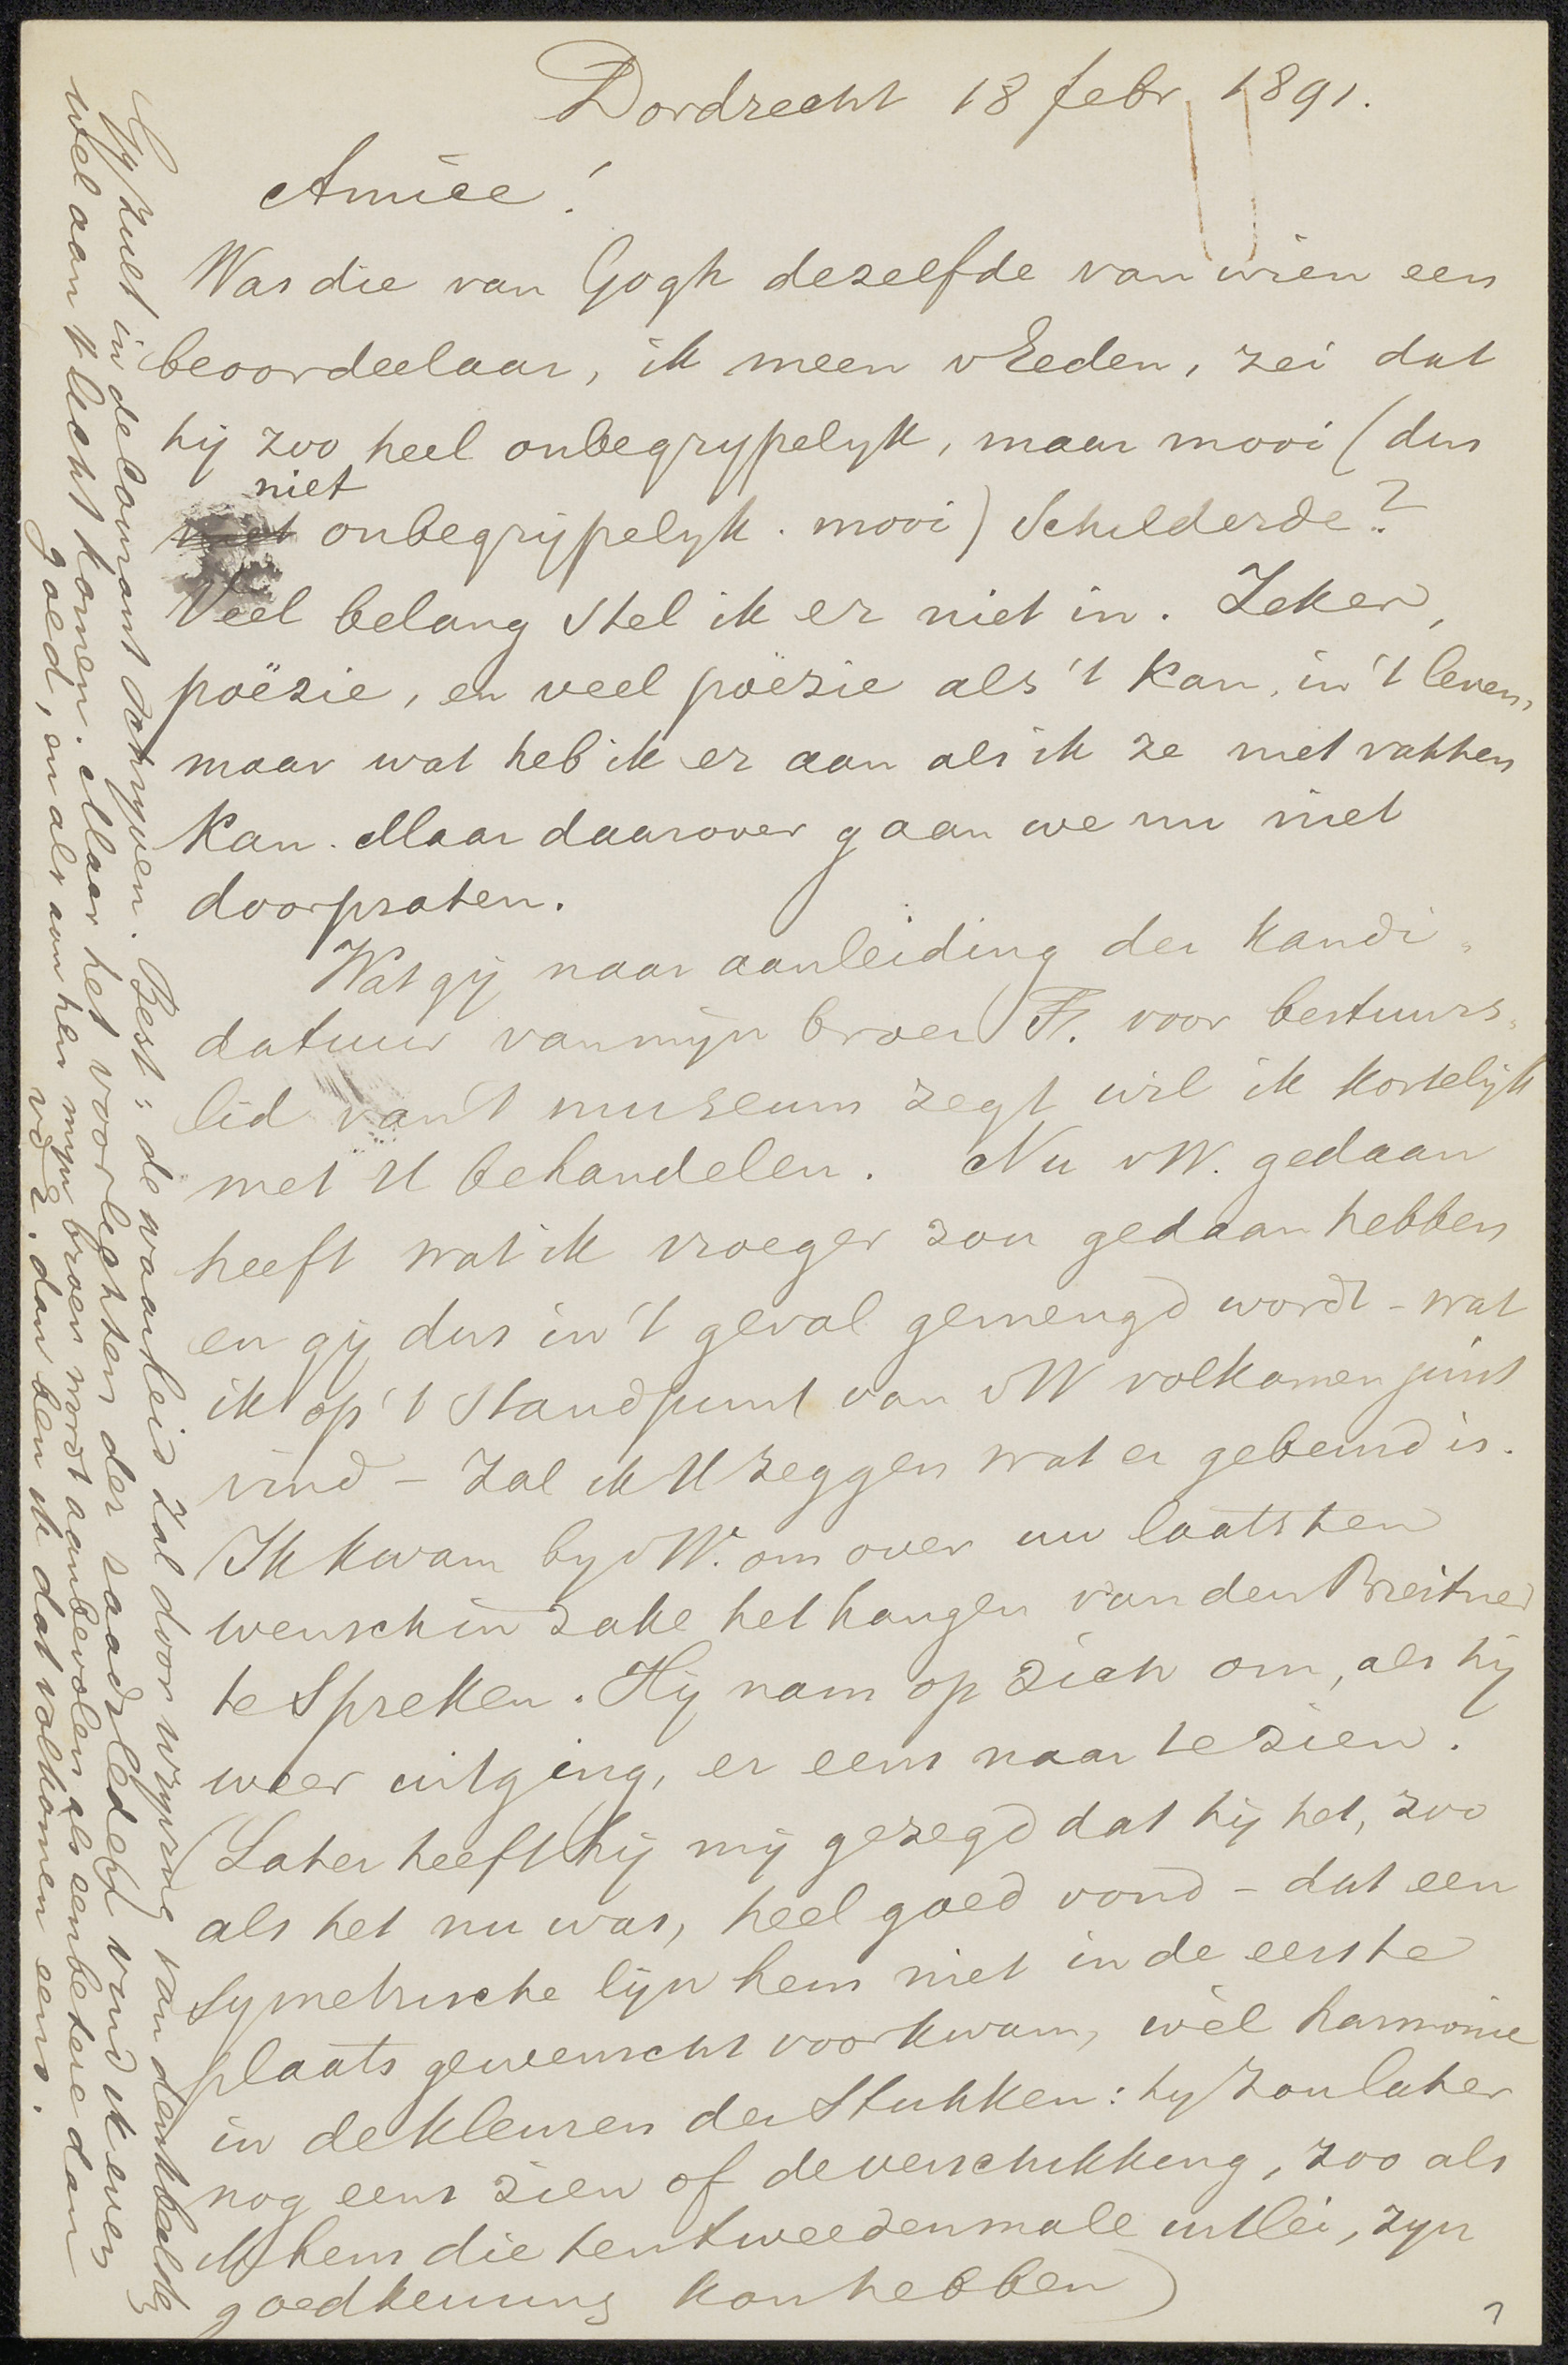 Dordrecht 18 febr 1891.
Amice!
Was die van Gogh dezelfde van wien een
beoordeelaar, ik meen v Eeden, zei dat
hij zoo heel onbegrypelyk, maar mooi (dus
niet
niet onbegrijpelyk. mooi) schilderde?
Veel belang stel ik er niet in. Zeker,
poëzie, en veel poëzie als 't kan, in 't leven,
maar wat heb ik er aan als ik ze niet vatten
kan. Maar daarover gaan we nu niet
doorpraten.
Wat gij naar aanleiding der kandi-
datuur van mijn broer Fr. voor bestuurs-
lid van 't museum zegt wil ik kortelijk
met U behandelen. Nu vW. gedaan
heeft wat ik vroeger zou gedaan hebben
en gij dus in 't geval gemengd wordt - wat
ik op 't standpunt van vW volkomen juist
vind - zal ik U zeggen wat er gebeurd is.
Ik kwam by vW. om over uw laatsten
wensch in zake het hangen van den Breitner
te spreken. Hij nam op zich om, als hij
weer uitging, er eens naar te zien.
(Later heeft hij mij gezegd dat hij het, zoo
als het nu was, heel goed vond - dat een
symetrische lijn hem niet in de eerste
plaats gewenscht voorkwam, wèl harmonie
in de kleuren der stukken: hy zou later
nog eens zien of de verschikking, zoo als
ik hem die ten tweedenmale uitlei, zyn
goedkeuring kon hebben)
Gy zult in de Courant schryven. Best: de waarheid zal door wryving van denkbeelden
wel aan 't licht komen. Maar het voorlichten der raadsleden vind ik even
goed, en als aan hen mijn broer wordt aanbevolen als een betere dan
vdE. dan ben ik dat volkomen eens.